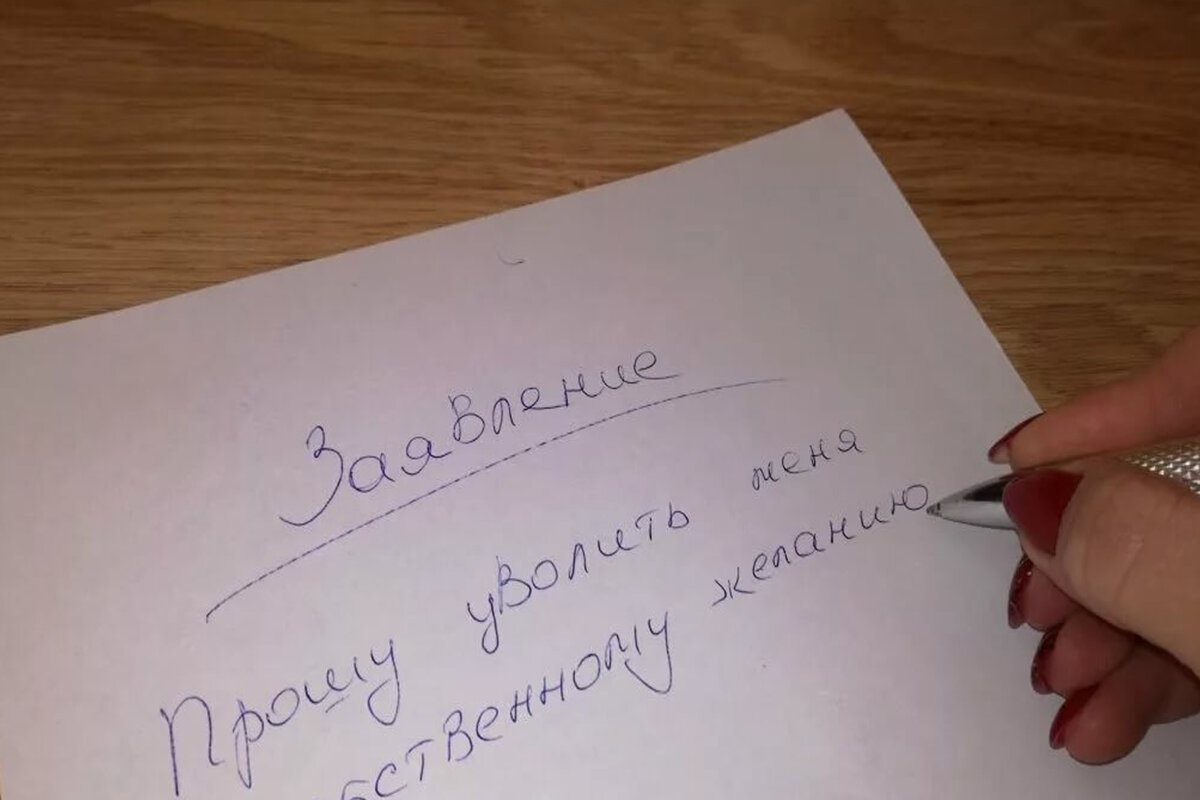 Заявление
Прошу уволить меня
собственному желанию